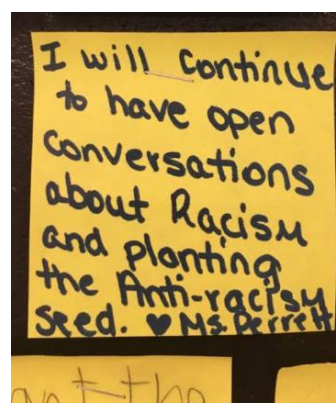 I will continue
to have open
conversations
about Racism
and planting
the Anti-racism
seed. ♥ Ms. Perrett
the